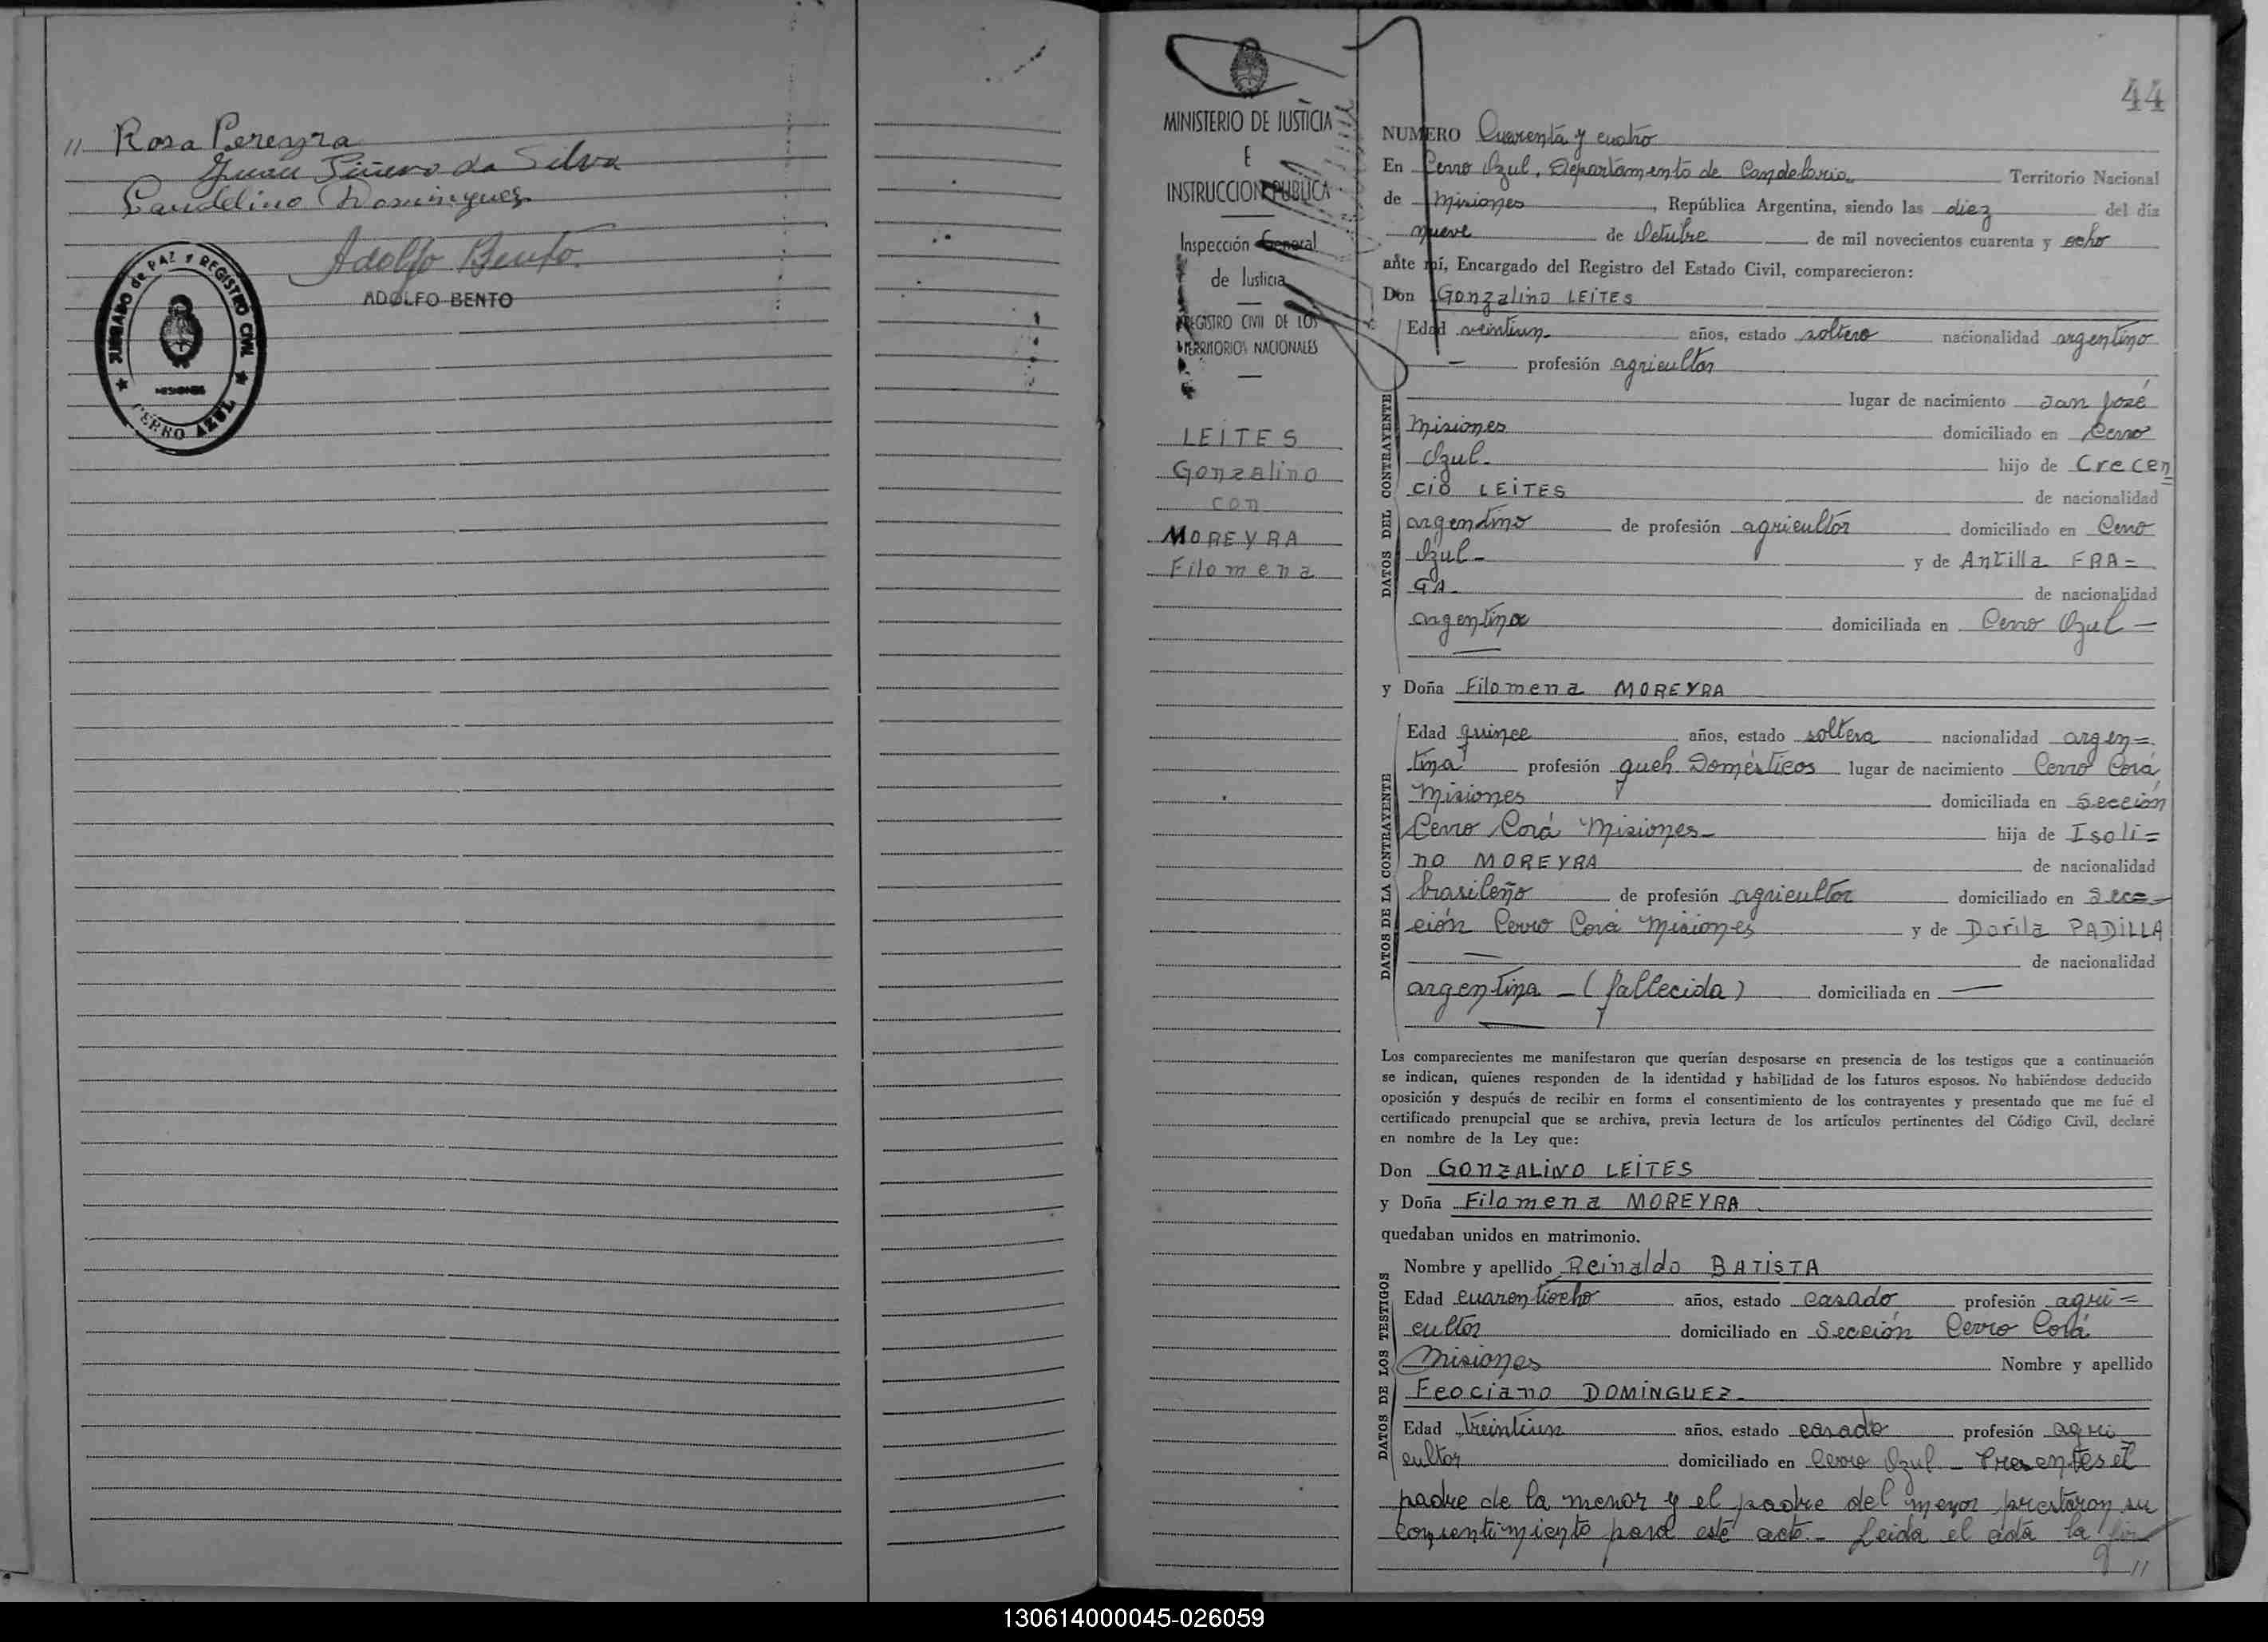 11 Rosa Pereyra
Juan Piñero da Silva
Candelino Dominguez
Adolfo Bento
ADOLFO BENTO
JUZGADO de PAZ y REGISTRO CIVIL
MISIONES
CERRO AZUL
MINISTERIO DE JUSTICIA
E
INSTRUCCION PUBLICA
Inspección General
de Justicia
REGISTRO CIVIL DE LOS
TERRITORIOS NACIONALES
LEITES
Gonzalino
con
MOREYRA
Filomena
44
NUMERO Cuarenta y cuatro
En Cerro Azul, Departamento de Candelaria Territorio Nacional
de Misiones, República Argentina, siendo las diez del día
nueve de Octubre de mil novecientos cuarenta y ocho
ante mí, Encargado del Registro del Estado Civil, comparecieron:
Don Gonzalino LEITES
DATOS DEL CONTRAYENTE
Edad veintiun años, estado soltero nacionalidad argentino
— profesión agricultor
lugar de nacimiento San José
Misiones domiciliado en Cerro
Azul- hijo de Crecen=
cio LEITES de nacionalidad
argentino de profesión agricultor domiciliado en Cerro
Azul- y de Antilla FRA=
GA- de nacionalidad
argentina domiciliada en Cerro Azul —
y Doña Filomena MOREYRA
DATOS DE LA CONTRAYENTE
Edad quince años, estado soltera nacionalidad argen=
tina profesión queh. Domésticos lugar de nacimiento Cerro Corá
Misiones domiciliada en Sección
Cerro Corá Misiones- hija de Isoli=
no MOREYRA de nacionalidad
brasileño de profesión agricultor domiciliado en Sec=
ción Cerro Corá Misiones y de Dorila PADILLA
— de nacionalidad
argentina - (fallecida) domiciliada en —
Los comparecientes me manifestaron que querían desposarse en presencia de los testigos que a continuación
se indican, quienes responden de la identidad y habilidad de los futuros esposos. No habiéndose deducido
oposición y después de recibir en forma el consentimiento de los contrayentes y presentado que me fué el
certificado prenupcial que se archiva, previa lectura de los artículos pertinentes del Código Civil, declaré
en nombre de la Ley que:
Don GONZALINO LEITES
y Doña Filomena MOREYRA
quedaban unidos en matrimonio.
DATOS DE LOS TESTIGOS
Nombre y apellido Reinaldo BATISTA
Edad cuarentiocho años, estado casado profesión agri=
cultor domiciliado en Sección Cerro Corá
Misiones Nombre y apellido
Feociano DOMINGUEZ-
Edad treintiun años, estado casado profesión agri
cultor domiciliado en Cerro Azul - Presentes el
padre de la menor y el padre del menor prestaron su
consentimiento para este acto.- Leída el acta la fir
11
130614000045-026059